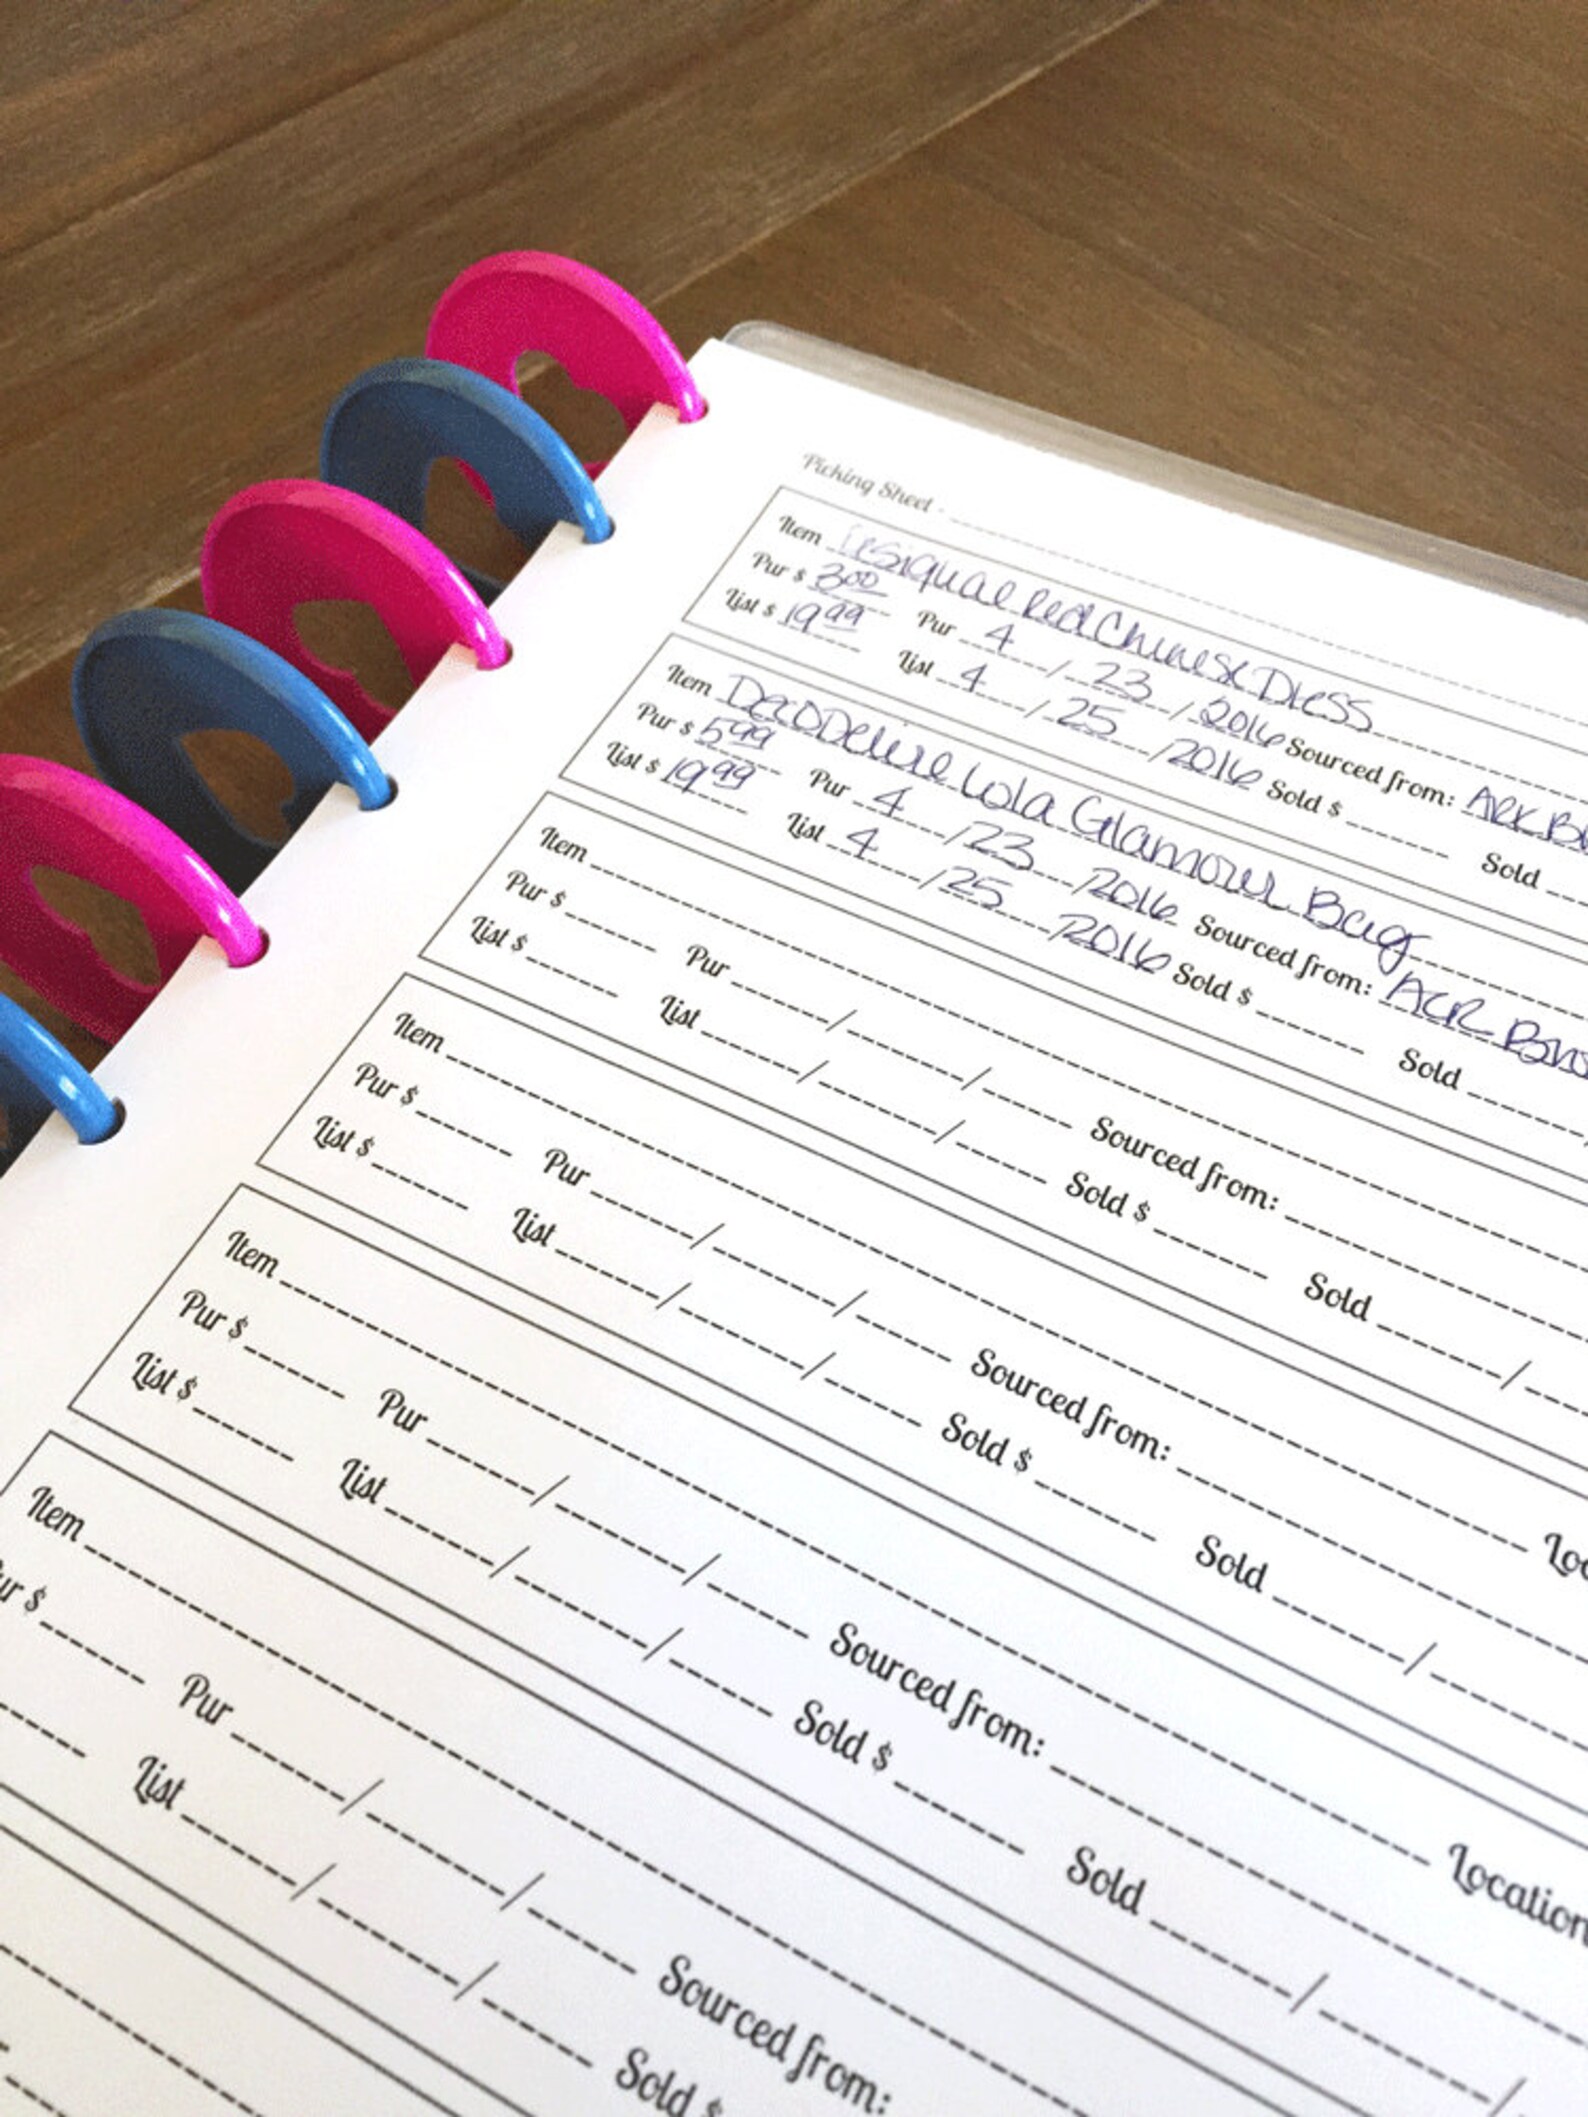 Picking Sheet -
Item Desigual Red Chinese Dress
Pur $ 3.00 Pur 4 / 23 / 2016 Sourced from: ARK
List $ 19.99 List 4 / 25 / 2016 Sold $ Sold
Item DecoDelire Lola Glamour Bag
Pur $ 5.99 Pur 4 / 23 / 2016 Sourced from: ACR
List $ 19.99 List 4 / 25 / 2016 Sold $ Sold
Item
Pur $ Pur / / Sourced from:
List $ List / / Sold $ Sold /
Item
Pur $ Pur / / Sourced from: Loc
List $ List / / Sold $ Sold /
Item
Pur $ Pur / / Sourced from: Location
List $ List / / Sold $ Sold /
Item
ur $ Pur / / Sourced from:
List / / Sold $